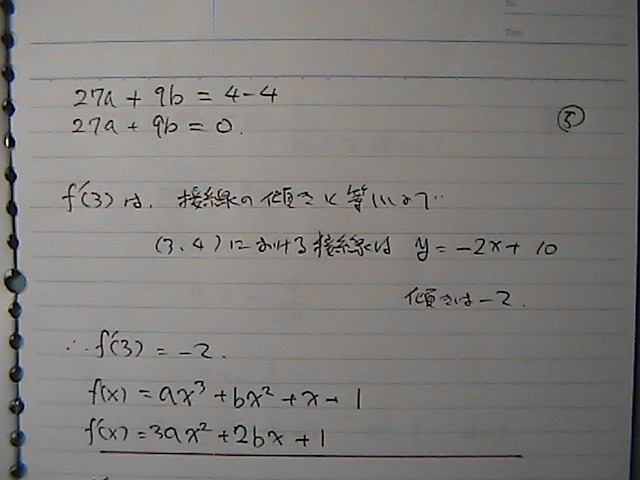 27a + 9b = 4-4
27a + 9b = 0.
⑤
f'(3) は、接線の傾きに等しいので…
(3, 4) における接線は y = -2x + 10
傾きは -2.
∴ f'(3) = -2.
f(x) = ax³ + bx² + x + 1
f'(x) = 3ax² + 2bx + 1